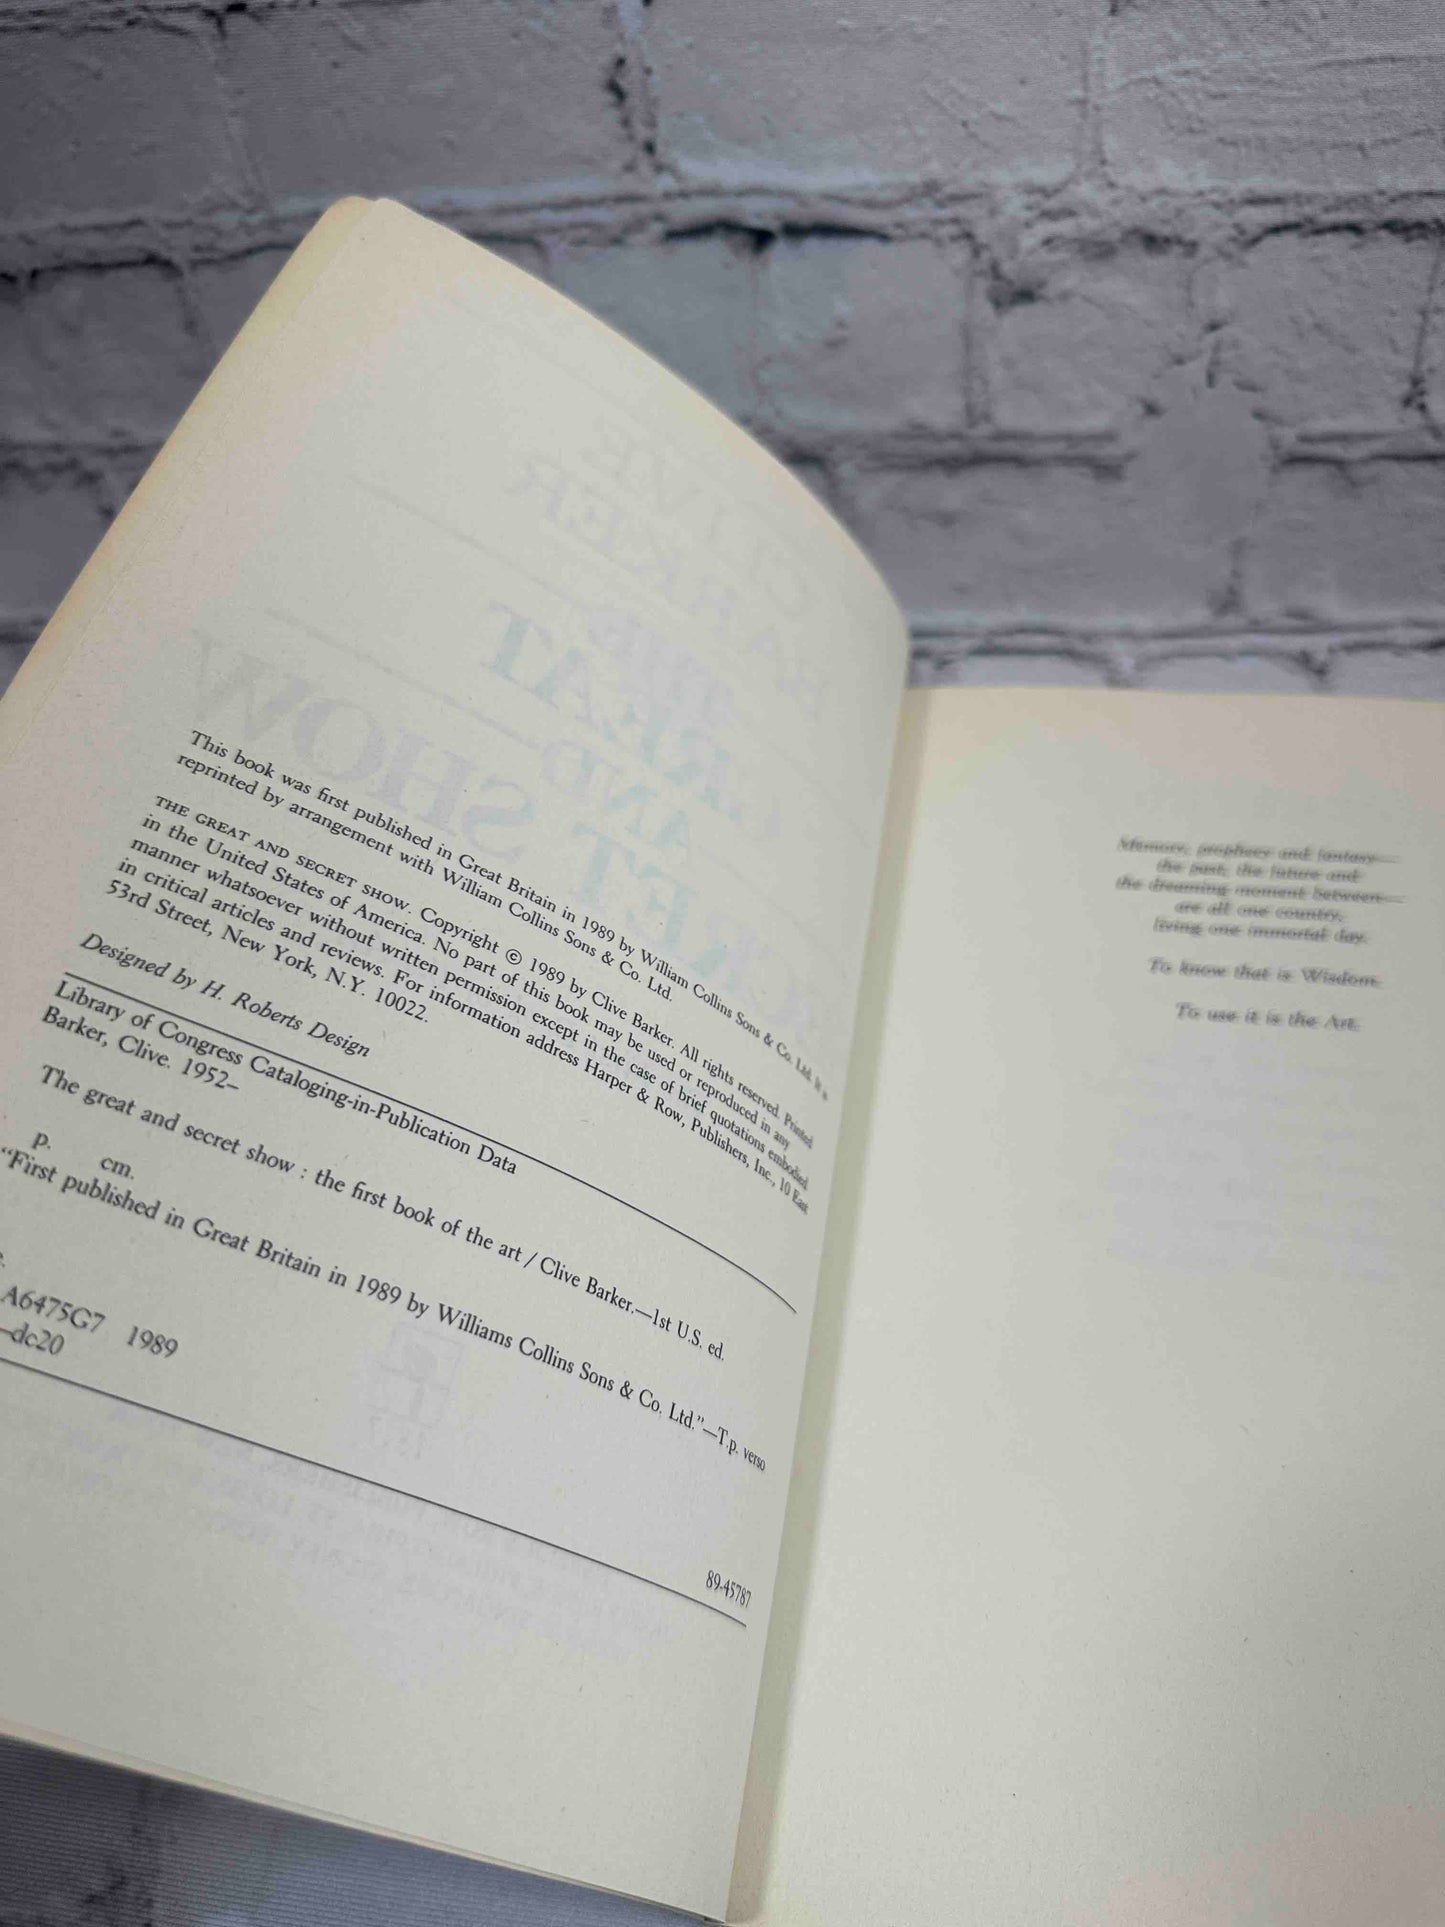 This book was first published in Great Britain in 1989 by William Collins Sons & Co. Ltd. It is
reprinted by arrangement with William Collins Sons & Co. Ltd.
THE GREAT AND SECRET SHOW. Copyright © 1989 by Clive Barker. All rights reserved. Printed
in the United States of America. No part of this book may be used or reproduced in any
manner whatsoever without written permission except in the case of brief quotations embodied
in critical articles and reviews. For information address Harper & Row, Publishers, Inc., 10 East
53rd Street, New York, N.Y. 10022.
Designed by H. Roberts Design
Library of Congress Cataloging-in-Publication Data
Barker, Clive. 1952–
The great and secret show : the first book of the art / Clive Barker.—1st U.S. ed.
p. cm.
“First published in Great Britain in 1989 by Williams Collins Sons & Co. Ltd.”—T.p. verso
A6475G7 1989
—dc20
89-45787
Memory, prophecy and fantasy—
the past, the future and
the dreaming moment between—
are all one country,
living one immortal day.
To know that is Wisdom.
To use it is the Art.